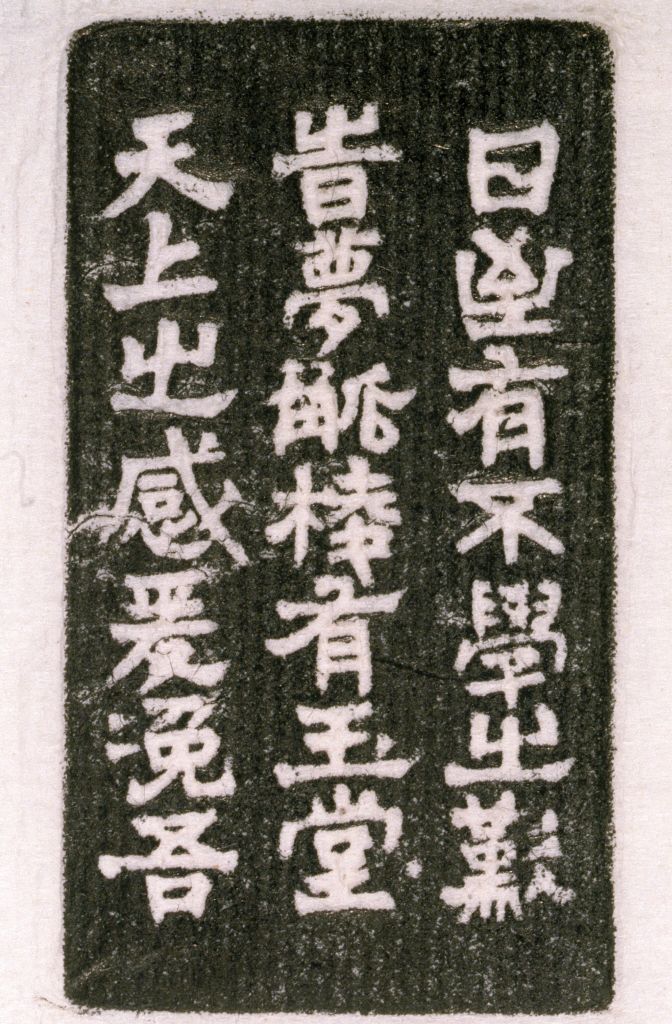 日有不學之歎
昔夢觚棱有玉堂
天上之感爰浼吾